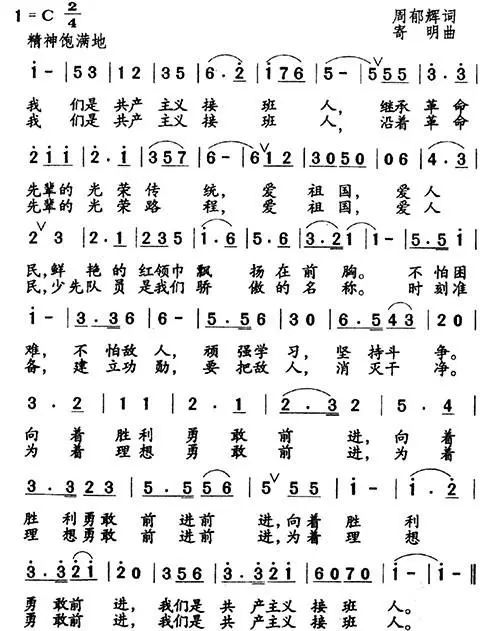 1=C 2/4 周郁辉词
精神饱满地 寄 明曲
i - | 53 | 12 | 35 | 6. 2 | i76 | 5 - | 555 | 3. 3 |
我 们是 共产 主义 接 班 人, 继承 革命
我 们是 共产 主义 接 班 人, 沿着 革命
2 i i | 2. i | 357 | 6 - | 612 | 3050 | 06 | 4. 3 |
先辈的 光 荣 传 统, 爱 祖 国, 爱 人
先辈的 光 荣 路 程, 爱 祖 国, 爱 人
2 3 | 2. 1 | 235 | i. 6 | 5. 6 | 3. 21 | 1 - | 5. 5 i |
民,鲜 艳 的 红领巾 飘 扬 在 前 胸。 不 怕 困
民,少先队 员 是我们 骄 傲 的 名 称。 时 刻 准
i - | 3. 36 | 6 - | 5. 56 | 30 | 6. 543 | 20 |
难, 不 怕敌 人, 顽 强学 习, 坚 持斗 争。
备, 建 立功 勋, 要 把敌 人, 消 灭干 净。
3. 2 | 11 | 2. 1 | 2 . 3 2 | 5. 4 |
向 着 胜利 勇 敢 前 进, 向 着
为 着 理想 勇 敢 前 进, 为 着
3. 3 2 3 | 5. 5 5 6 | 5 55 | i - | i. 2 |
胜 利勇敢 前 进前 进,向着 胜 利
理 想勇敢 前 进前 进,为着 理 想
3. 3 2 i | 20 | 356 | 3. 3 2 i | 6070 | i - | i - ‖
勇 敢前 进, 我们是 共 产主义 接 班 人。
勇 敢前 进, 我们是 共 产主义 接 班 人。